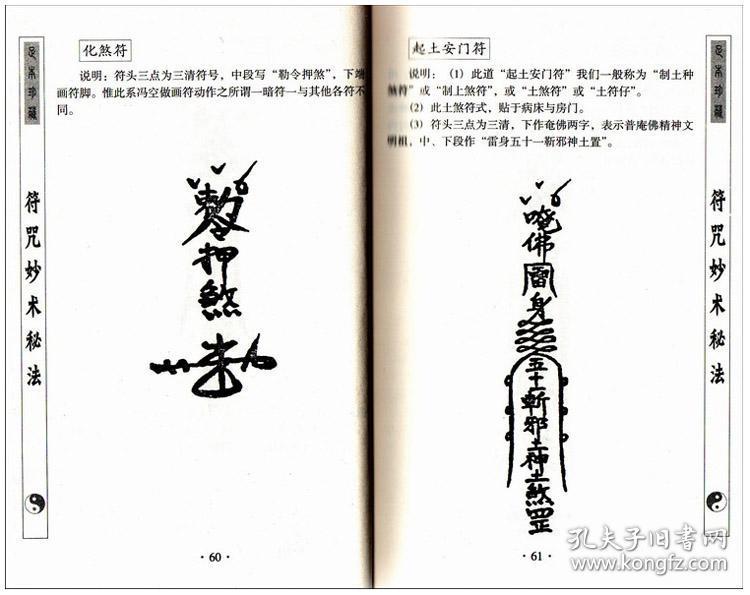 足本珍藏
符咒妙术秘法
化煞符
说明：符头三点为三清符号，中段写“勒令押煞”，下端
画符脚。惟此系冯空做画符动作之所谓一暗符一与其他各符不
同。
敕令
押
煞
·60·
起土安门符
说明：（1）此道“起土安门符”我们一般称为“制土种
煞符”或“制上煞符”，或“土煞符”或“土符仔”。
（2）此土煞符式，贴于病床与房门。
（3）符头三点为三清，下作奄佛两字，表示普庵佛精神文
明祖，中、下段作“雷身五十一斬邪神土置”。
唵
佛
雷
身
五
十
斬
邪
土
神
土
煞
罡
·61·
足本珍藏
符咒妙术秘法
孔夫子旧书网
www.kongfz.com